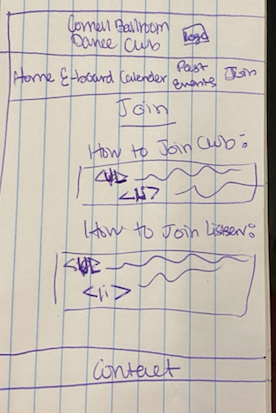 Cornell Ballroom
Dance Club
Logo
Home E-board Calender Past Events Join
Join
How to Join Club:
<li>
How to Join Listserv:
<li>
Contact